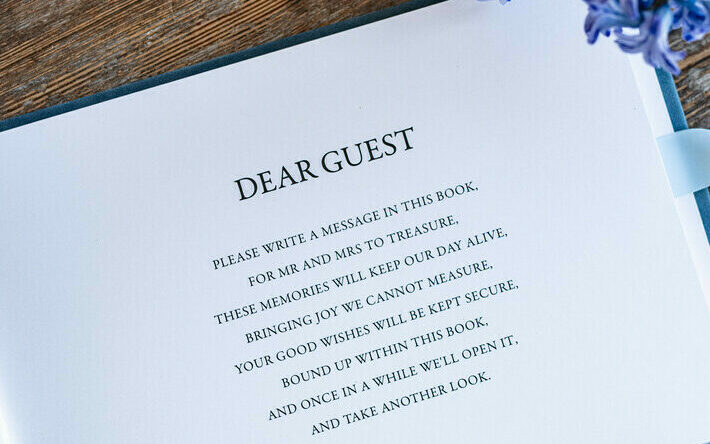 DEAR GUEST
PLEASE WRITE A MESSAGE IN THIS BOOK,
FOR MR AND MRS TO TREASURE,
THESE MEMORIES WILL KEEP OUR DAY ALIVE,
BRINGING JOY WE CANNOT MEASURE,
YOUR GOOD WISHES WILL BE KEPT SECURE,
BOUND UP WITHIN THIS BOOK,
AND ONCE IN A WHILE WE'LL OPEN IT,
AND TAKE ANOTHER LOOK.